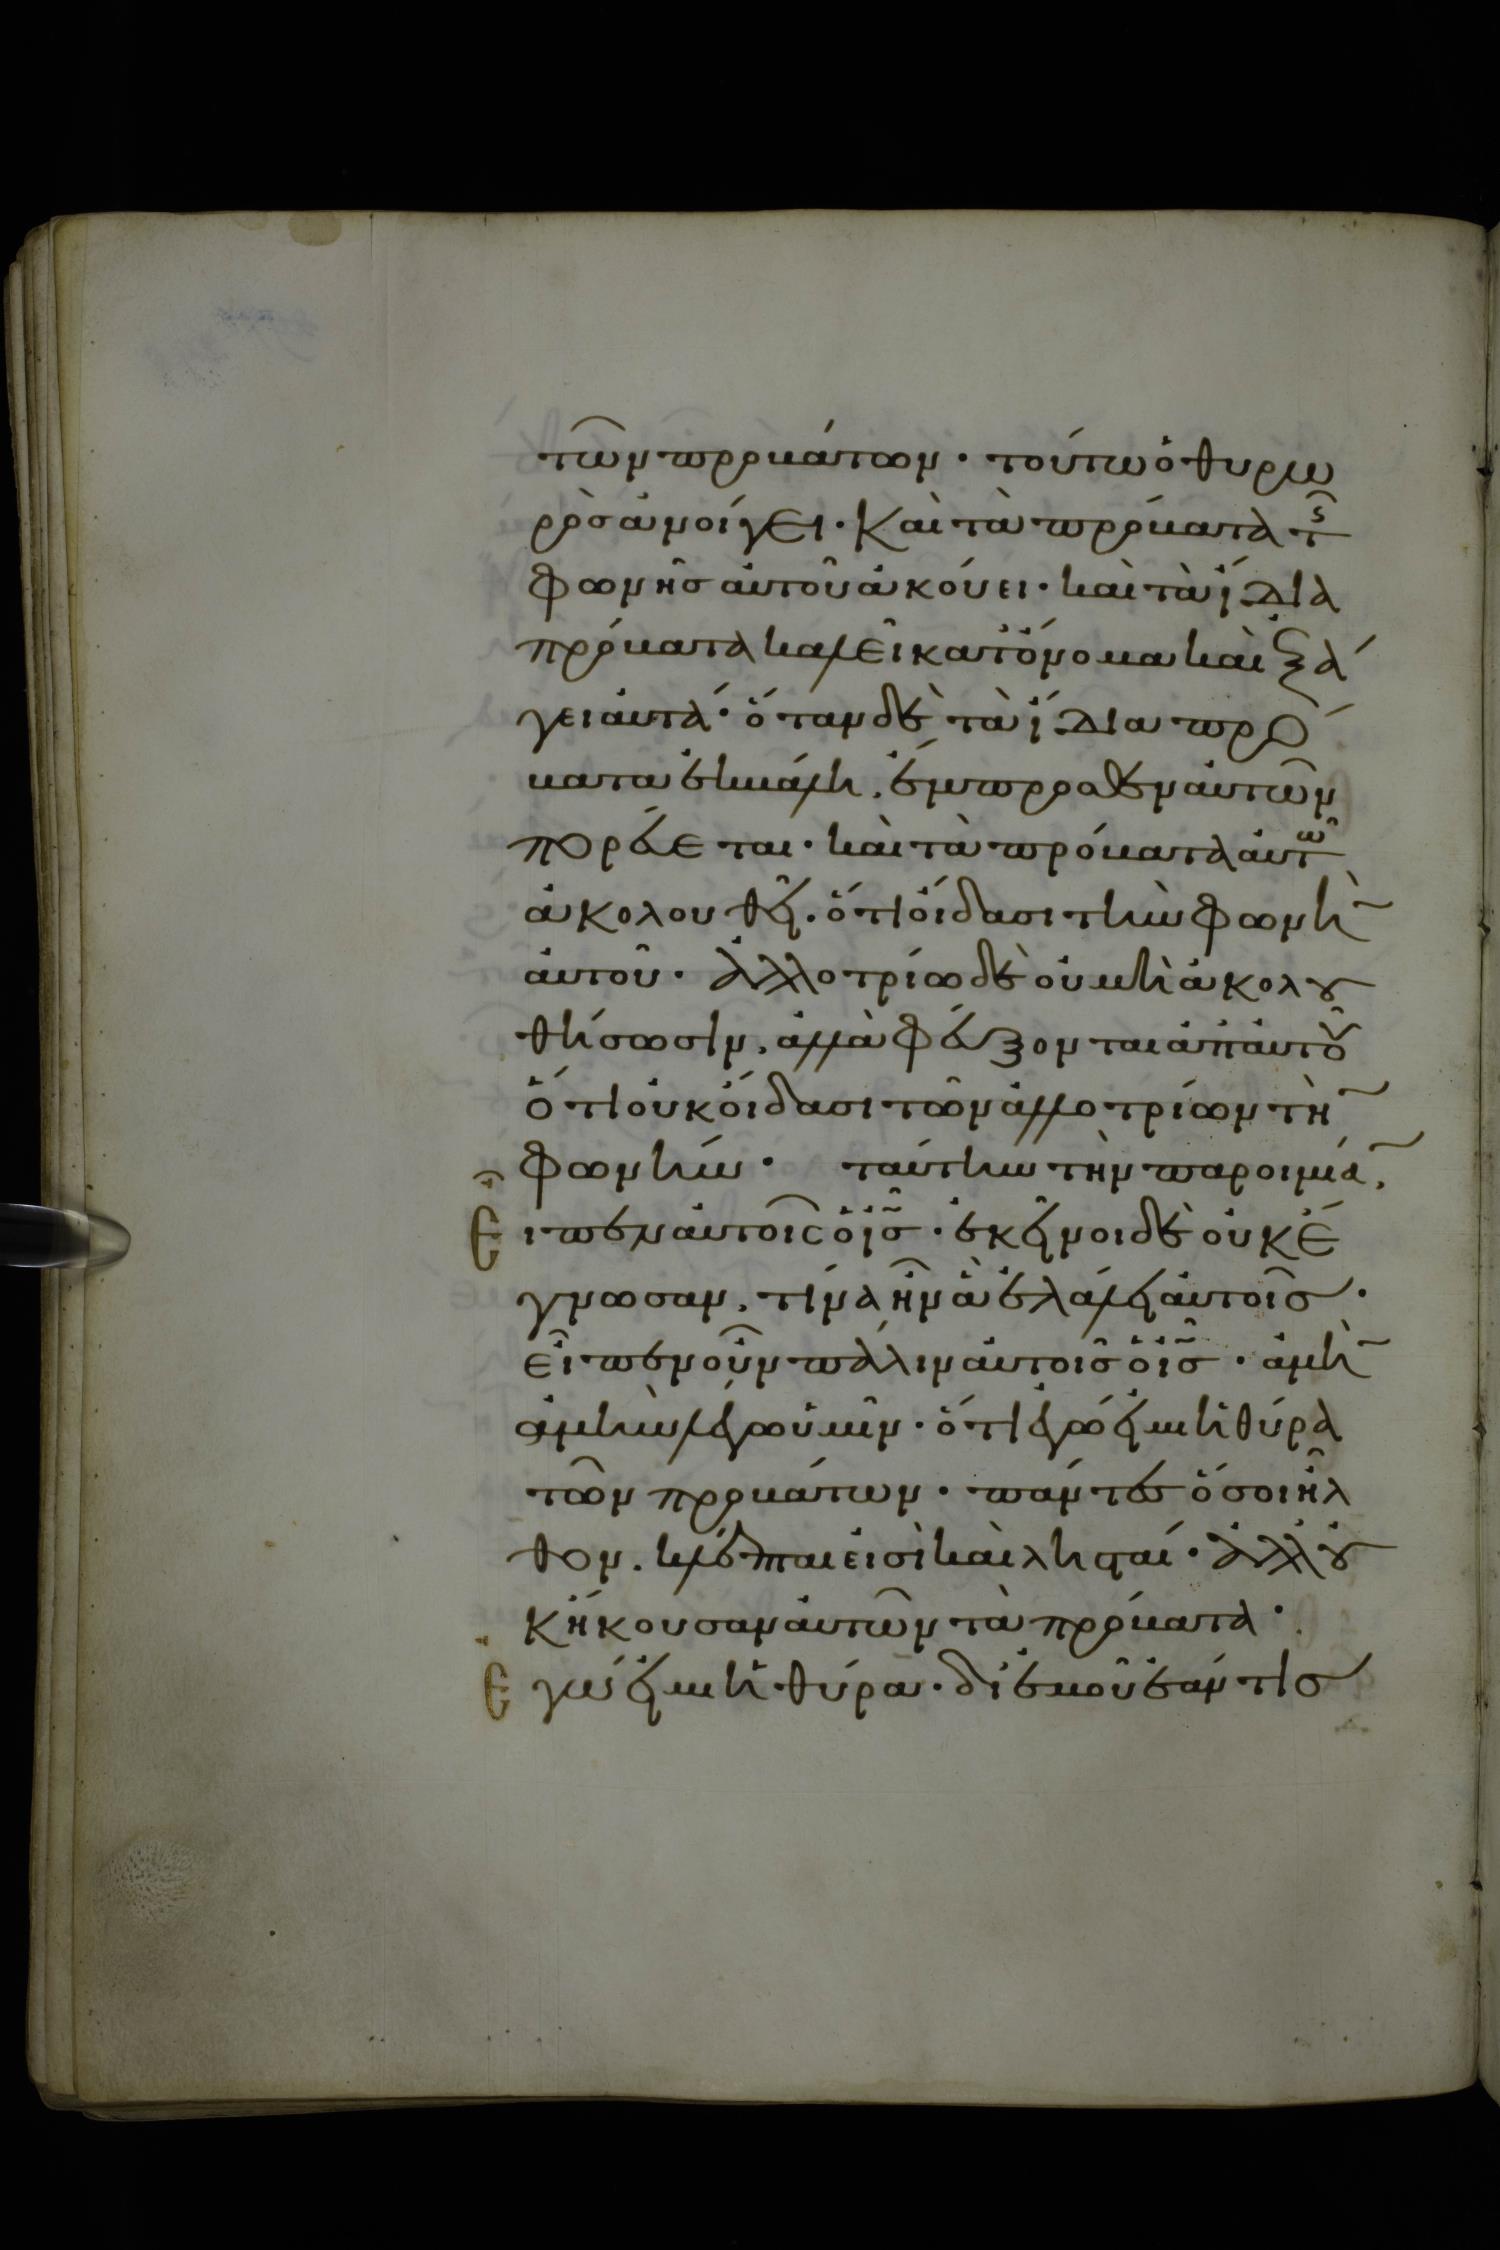 τῶν προβάτων · τούτω ὁ θυρω
ρὸς ἀνοίγει · Καὶ τὰ πρόβατα τῆς
φωνῆς αὐτοῦ ἀκούει · καὶ τὰ ἴδια
πρόβατα καλεῖ κατ' ὄνομα καὶ ἐξά
γει αὐτά · ὅταν δὲ τὰ ἴδια πρό
βατα ἐκβάλη, ἔμπροσθεν αὐτῶν
πορεύεται · καὶ τὰ πρόβατα αὐτῶ
ἀκολουθεῖ · ὅτι οἴδασι τὴν φωνὴ̃
αὐτοῦ · ἀλλοτρίω δὲ οὐ μὴ ἀκολου
θήσωσιν, ἀλλὰ φεύξονται ἀπ' αὐτοῦ
ὅτι οὐκ οἴδασι τῶν ἀλλοτρίων τὴ̃
φωνήν · ταύτην τὴν παροιμία̃,
Εἶπεν αὐτοῖς ὁ ἰ̅ς̅ · ἐκεῖνοι δὲ οὐκ ἔ
γνωσαν, τίνα ἦν ἃ ἐλάλει αὐτοῖς ·
εἶπεν οὖν πάλιν αὐτοῖς ὁ ἰ̅ς̅ · ἀμὴ̃
ἀμὴν λέγω ὑμῖν · ὅτι ἐγώ εἰμι ἡ θύρα
τῶν προβάτων · πάντες ὅσοι ἦλ
θον, κλέπται εἰσὶ καὶ λησταί · ἀλλ' οὐ
κ ἤκουσαν αὐτῶν τὰ πρόβατα ·
Ἐγώ εἰμι ἡ θύρα · δι' ἐμοῦ ἐάν τις